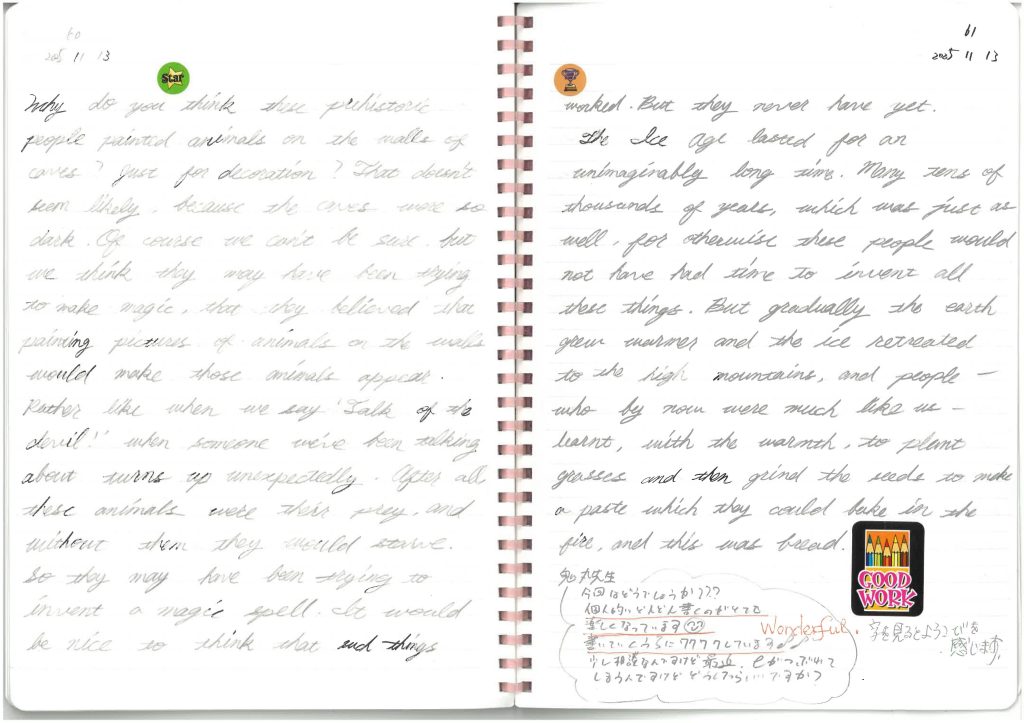 60
2025 11 13
Star
Why do you think these prehistoric
people painted animals on the walls of
caves? Just for decoration? That doesn't
seem likely, because the caves were so
dark. Of course we can't be sure, but
we think they may have been trying
to make magic, that they believed that
painting pictures of animals on the walls
would make those animals appear.
Rather like when we say 'Talk of the
devil!' when someone we've been talking
about turns up unexpectedly. After all
these animals were their prey, and
without them they would starve.
So they may have been trying to
invent a magic spell. It would
be nice to think that such things
61
2025 11 13
worked. But they never have yet.
The Ice Age lasted for an
unimaginably long time. Many tens of
thousands of years, which was just as
well, for otherwise these people would
not have had time to invent all
these things. But gradually the earth
grew warmer and the ice retreated
to the high mountains, and people —
who by now were much like us —
learnt, with the warmth, to plant
grasses and then grind the seeds to make
a paste which they could bake in the
fire, and this was bread.
先生
今回はどうでしょうか???
個人的にどんどん書くのがとても
楽しくなっています
書いているうちにワクワクしています
少し相談なんですけど最近、eがつぶれて
しまうんですけどどうしたらいいですか?
Wonderful.
GOOD
WORK
字を見るとよろこびを
感じます。